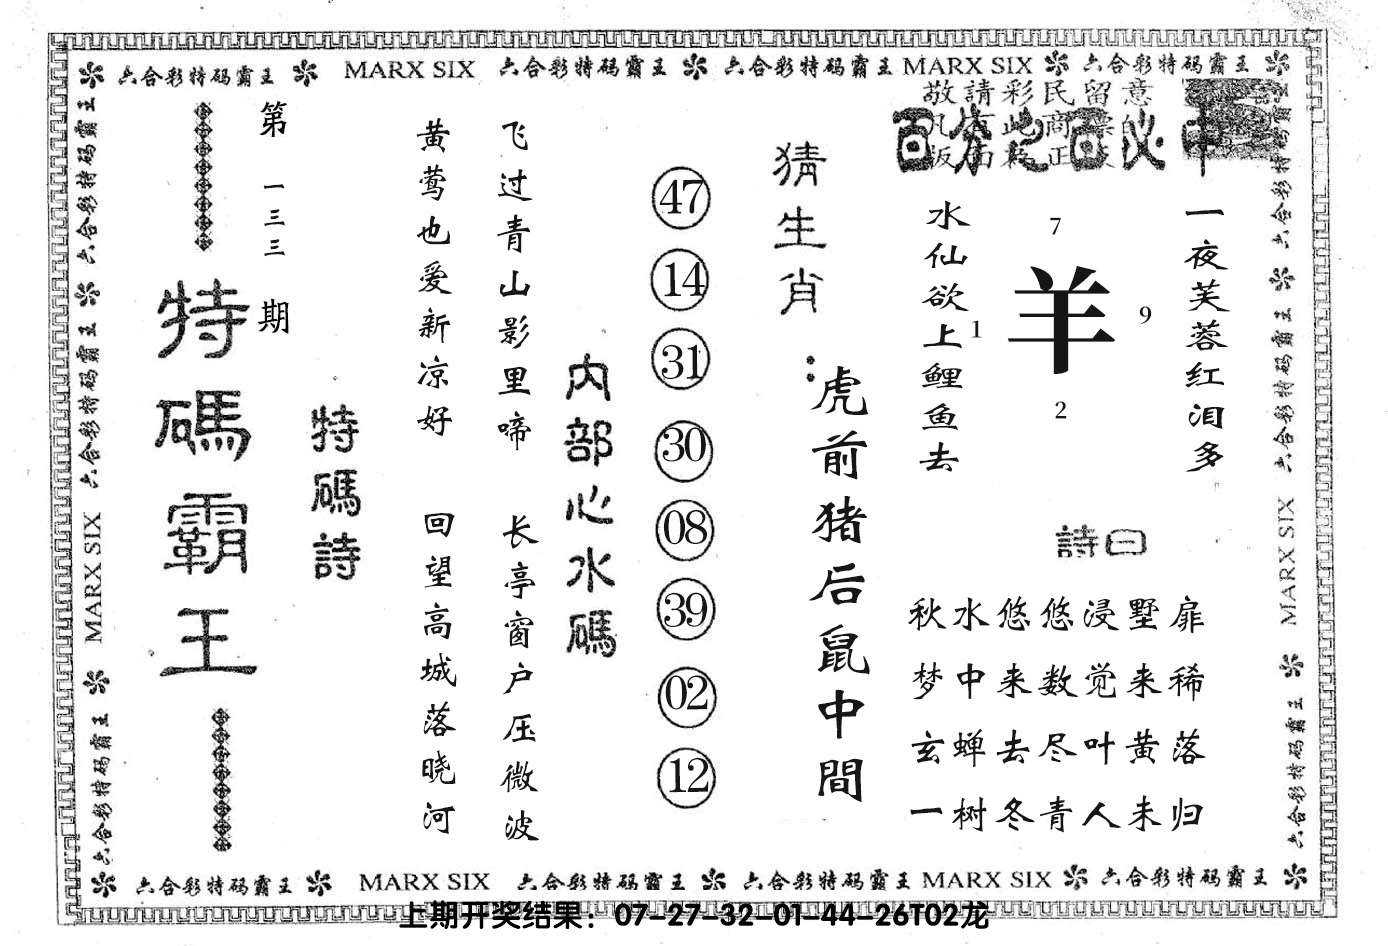 六合彩特码霸王 MARX SIX 六合彩特码霸王 六合彩特码霸王 MARX SIX 六合彩特码霸王
敬請彩民留意
百分之百必中
一夜芙蓉红泪多
7
羊
1
9
2
水仙欲上鲤鱼去
詩曰
秋水悠悠浸墅扉
梦中来数觉来稀
玄蝉去尽叶黄落
一树冬青人未归
猜生肖:
虎前猪后鼠中間
47
14
31
30
08
39
02
12
内部心水碼
飞过青山影里啼
长亭窗户压微波
黄莺也爱新凉好
回望高城落晓河
特碼詩
第一三三期
特碼霸王
六合彩特码霸王 六合彩特码霸王 MARX SIX 六合彩特码霸王
六合彩特码霸王 六合彩特码霸王 MARX SIX 六合彩特码霸王
六合彩特码霸王 MARX SIX 六合彩特码霸王 六合彩特码霸王 MARX SIX 六合彩特码霸王
上期开奖结果：07-27-32-01-44-26T02龙